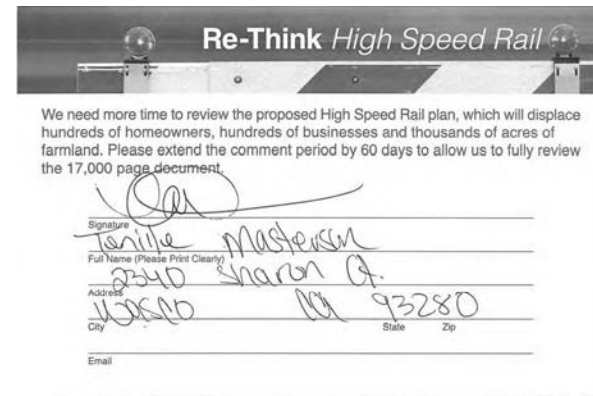 Re-Think High Speed Rail
We need more time to review the proposed High Speed Rail plan, which will displace
hundreds of homeowners, hundreds of businesses and thousands of acres of
farmland. Please extend the comment period by 60 days to allow us to fully review
the 17,000 page document.
Signature
Tenille Masterson
Full Name (Please Print Clearly)
2340 Sharon Ct.
Address
Wasco CA 93280
City State Zip
Email